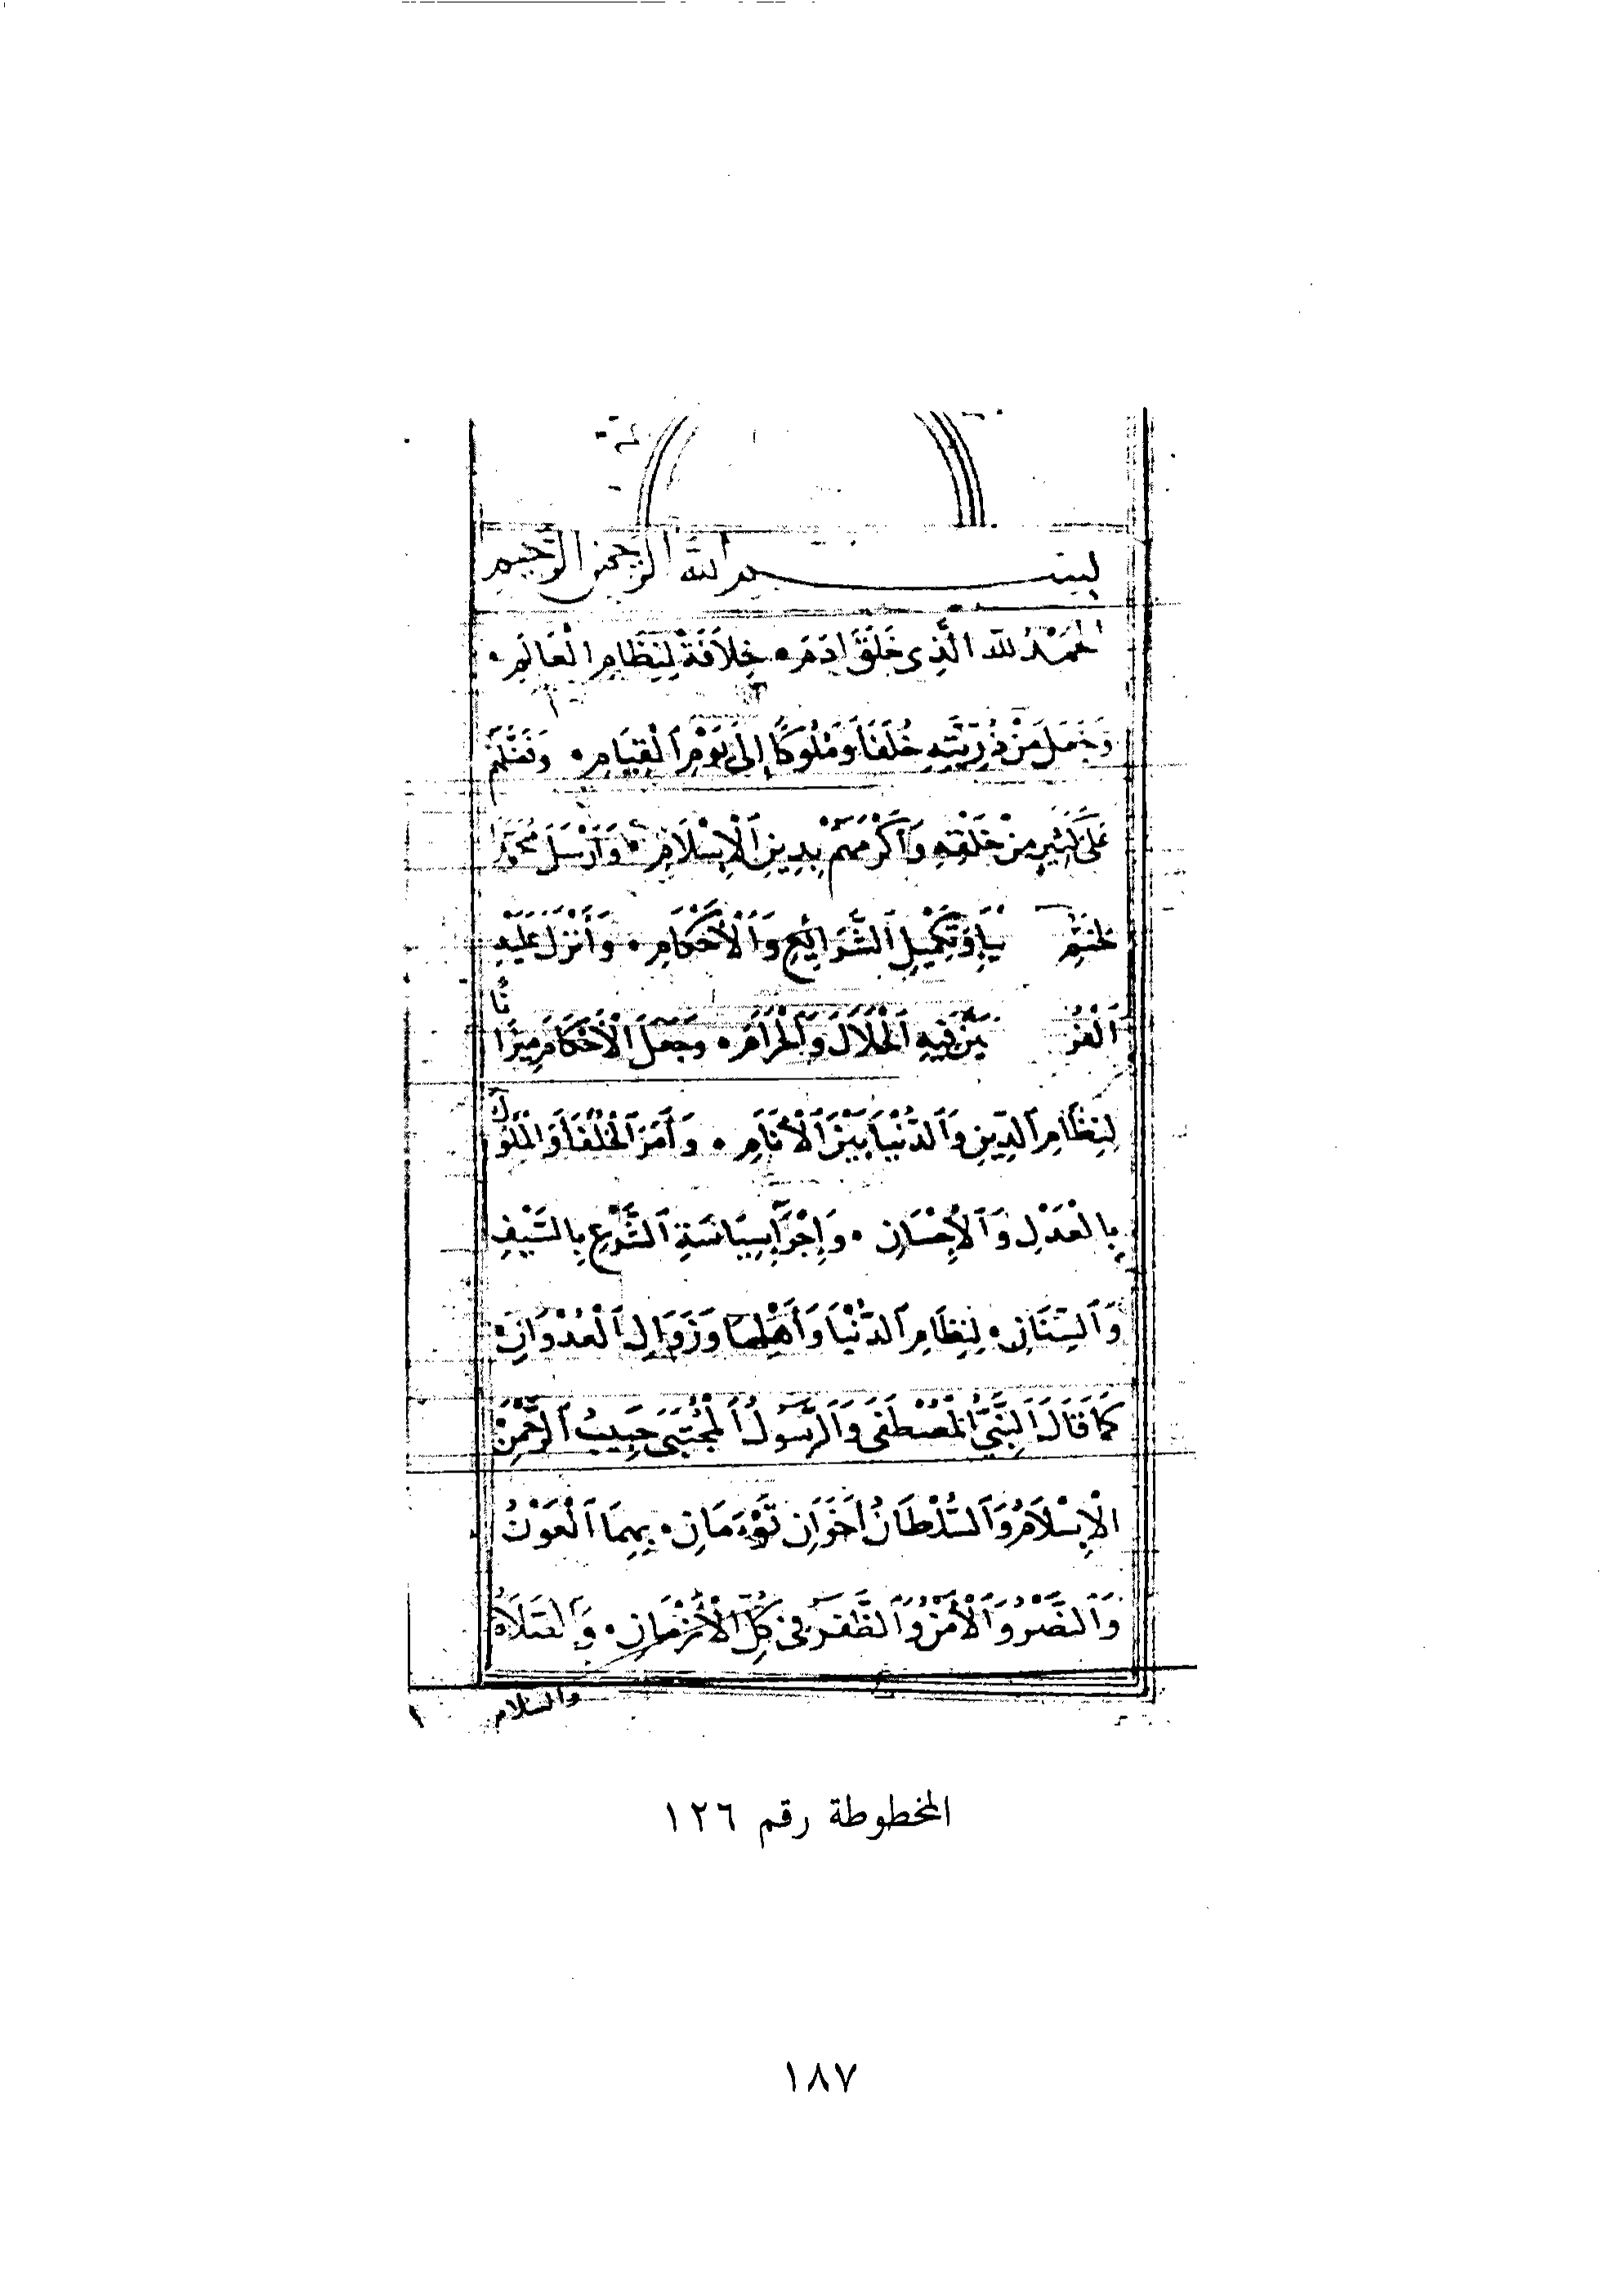 بسم الله الرحمن الرحيم
الحَمْدُ لله الَّذِى خَلَقَ ادَمَ • خِلَافَةً لِنِظَامِ الْعَالَمِ •
وَجَعَلَ مِنْ ذُرِّيَّتِهِ خُلَفَا وَمُلُوكًا إِلَى يَوْمِ الْقِيَامِ • وَفَضَّلَهُمْ
عَلَى كَثِيرٍ مِنْ خَلْقِهِ وَأَكْرَمَهُمْ بِدِينِ الْإِسْلَامِ • وَأَرْسَلَ مُحَمَّدًا
لختم يَاءِ وَتَكْمِيلِ الشَّرَائِعِ وَالْأَحْكَامِ • وَأَنْزَلَ عَلَيْهِ
الْقُر بَيَّنَ فِيهِ الْحَلَالَ وَالْحَرَامَ • وَجَعَلَ الْأَحْكَامَ مِيزَانًا
لِنِظَامِ الدِّينِ وَالدُّنْيَا بَيْنَ الْأَنَامِ • وَأَمَرَ الْخُلَفَا وَالْمُلُوكَ
بِالْعَدْلِ وَالْإِحْسَانِ • وَإِجْرَا سِيَاسَةِ الشَّرْعِ بِالسَّيْفِ
وَالسِّنَانِ • لِنِظَامِ الدُّنْيَا وَأَهْلِهَا وَزَوَالِ الْعُدْوَانِ •
كَمَا قَالَ النَّبِيُّ الْمُصْطَفَى وَالرَّسُولُ الْمُجْتَبَى حَبِيبُ الرَّحْمَنِ
الْإِسْلَامُ وَالسُّلْطَانُ أَخَوَانِ تَوْءَمَانِ • بِهِمَا الْعَوْنُ
وَالنَّصْرُ وَالْأَمْنُ وَالظَّفَرُ فِى كُلِّ الْأَزْمَانِ • وَالصَّلَاةُ
والسلام
١
المخطوطة رقم ١٢٦
١٨٧